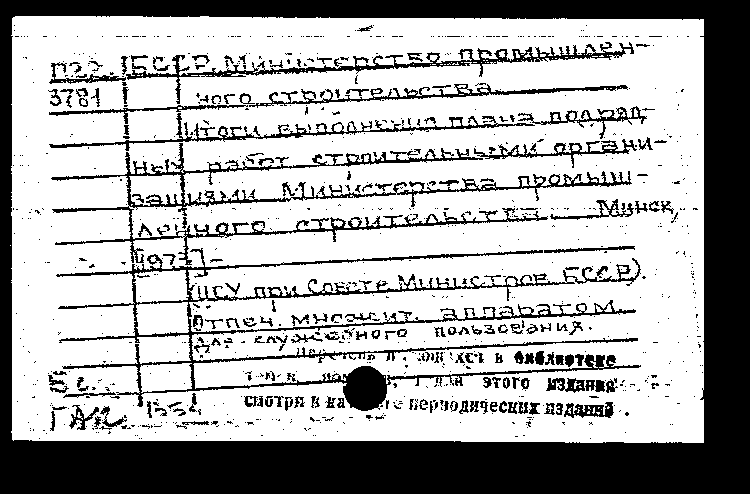 П22. БССР. Министерство промышлен-
3781 ного строительства.
Итоги выполнения плана подряд-
ных работ строительными органи-
зациями Министерства промыш-
ленного строительства. Минск,
[1973]-
(ЦСУ при Совете Министров БССР).
Отпеч. множит. аппаратом.
Для служебного пользования.
Перечень в библиотеке
для этого издания
смотри в периодических изданий.